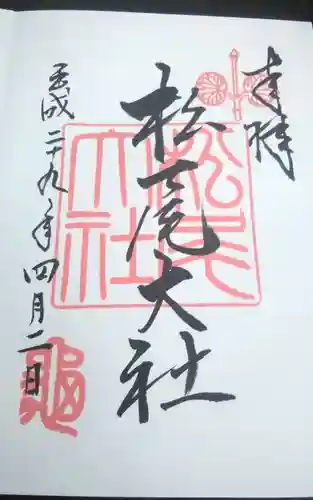 奉拝
松尾大社
平成二十九年四月二日
松尾大社